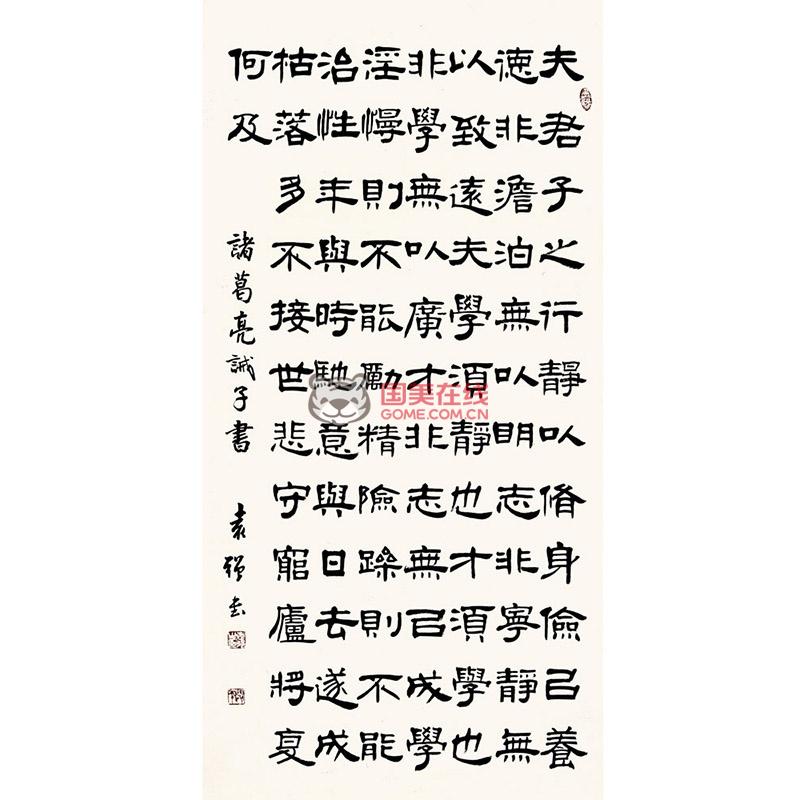 夫君子之行靜以脩身儉己養
德非澹泊無以明志非寧靜無
以致遠夫學須靜也才須學也
非學無以廣才非志無己成學
淫慢則不能勵精險躁則不能
治性年與時馳意與日去遂成
枯落多不接世悲守窮廬將复
何及
諸葛亮誡子書 袁強书
国美在线
GOME.COM.CN